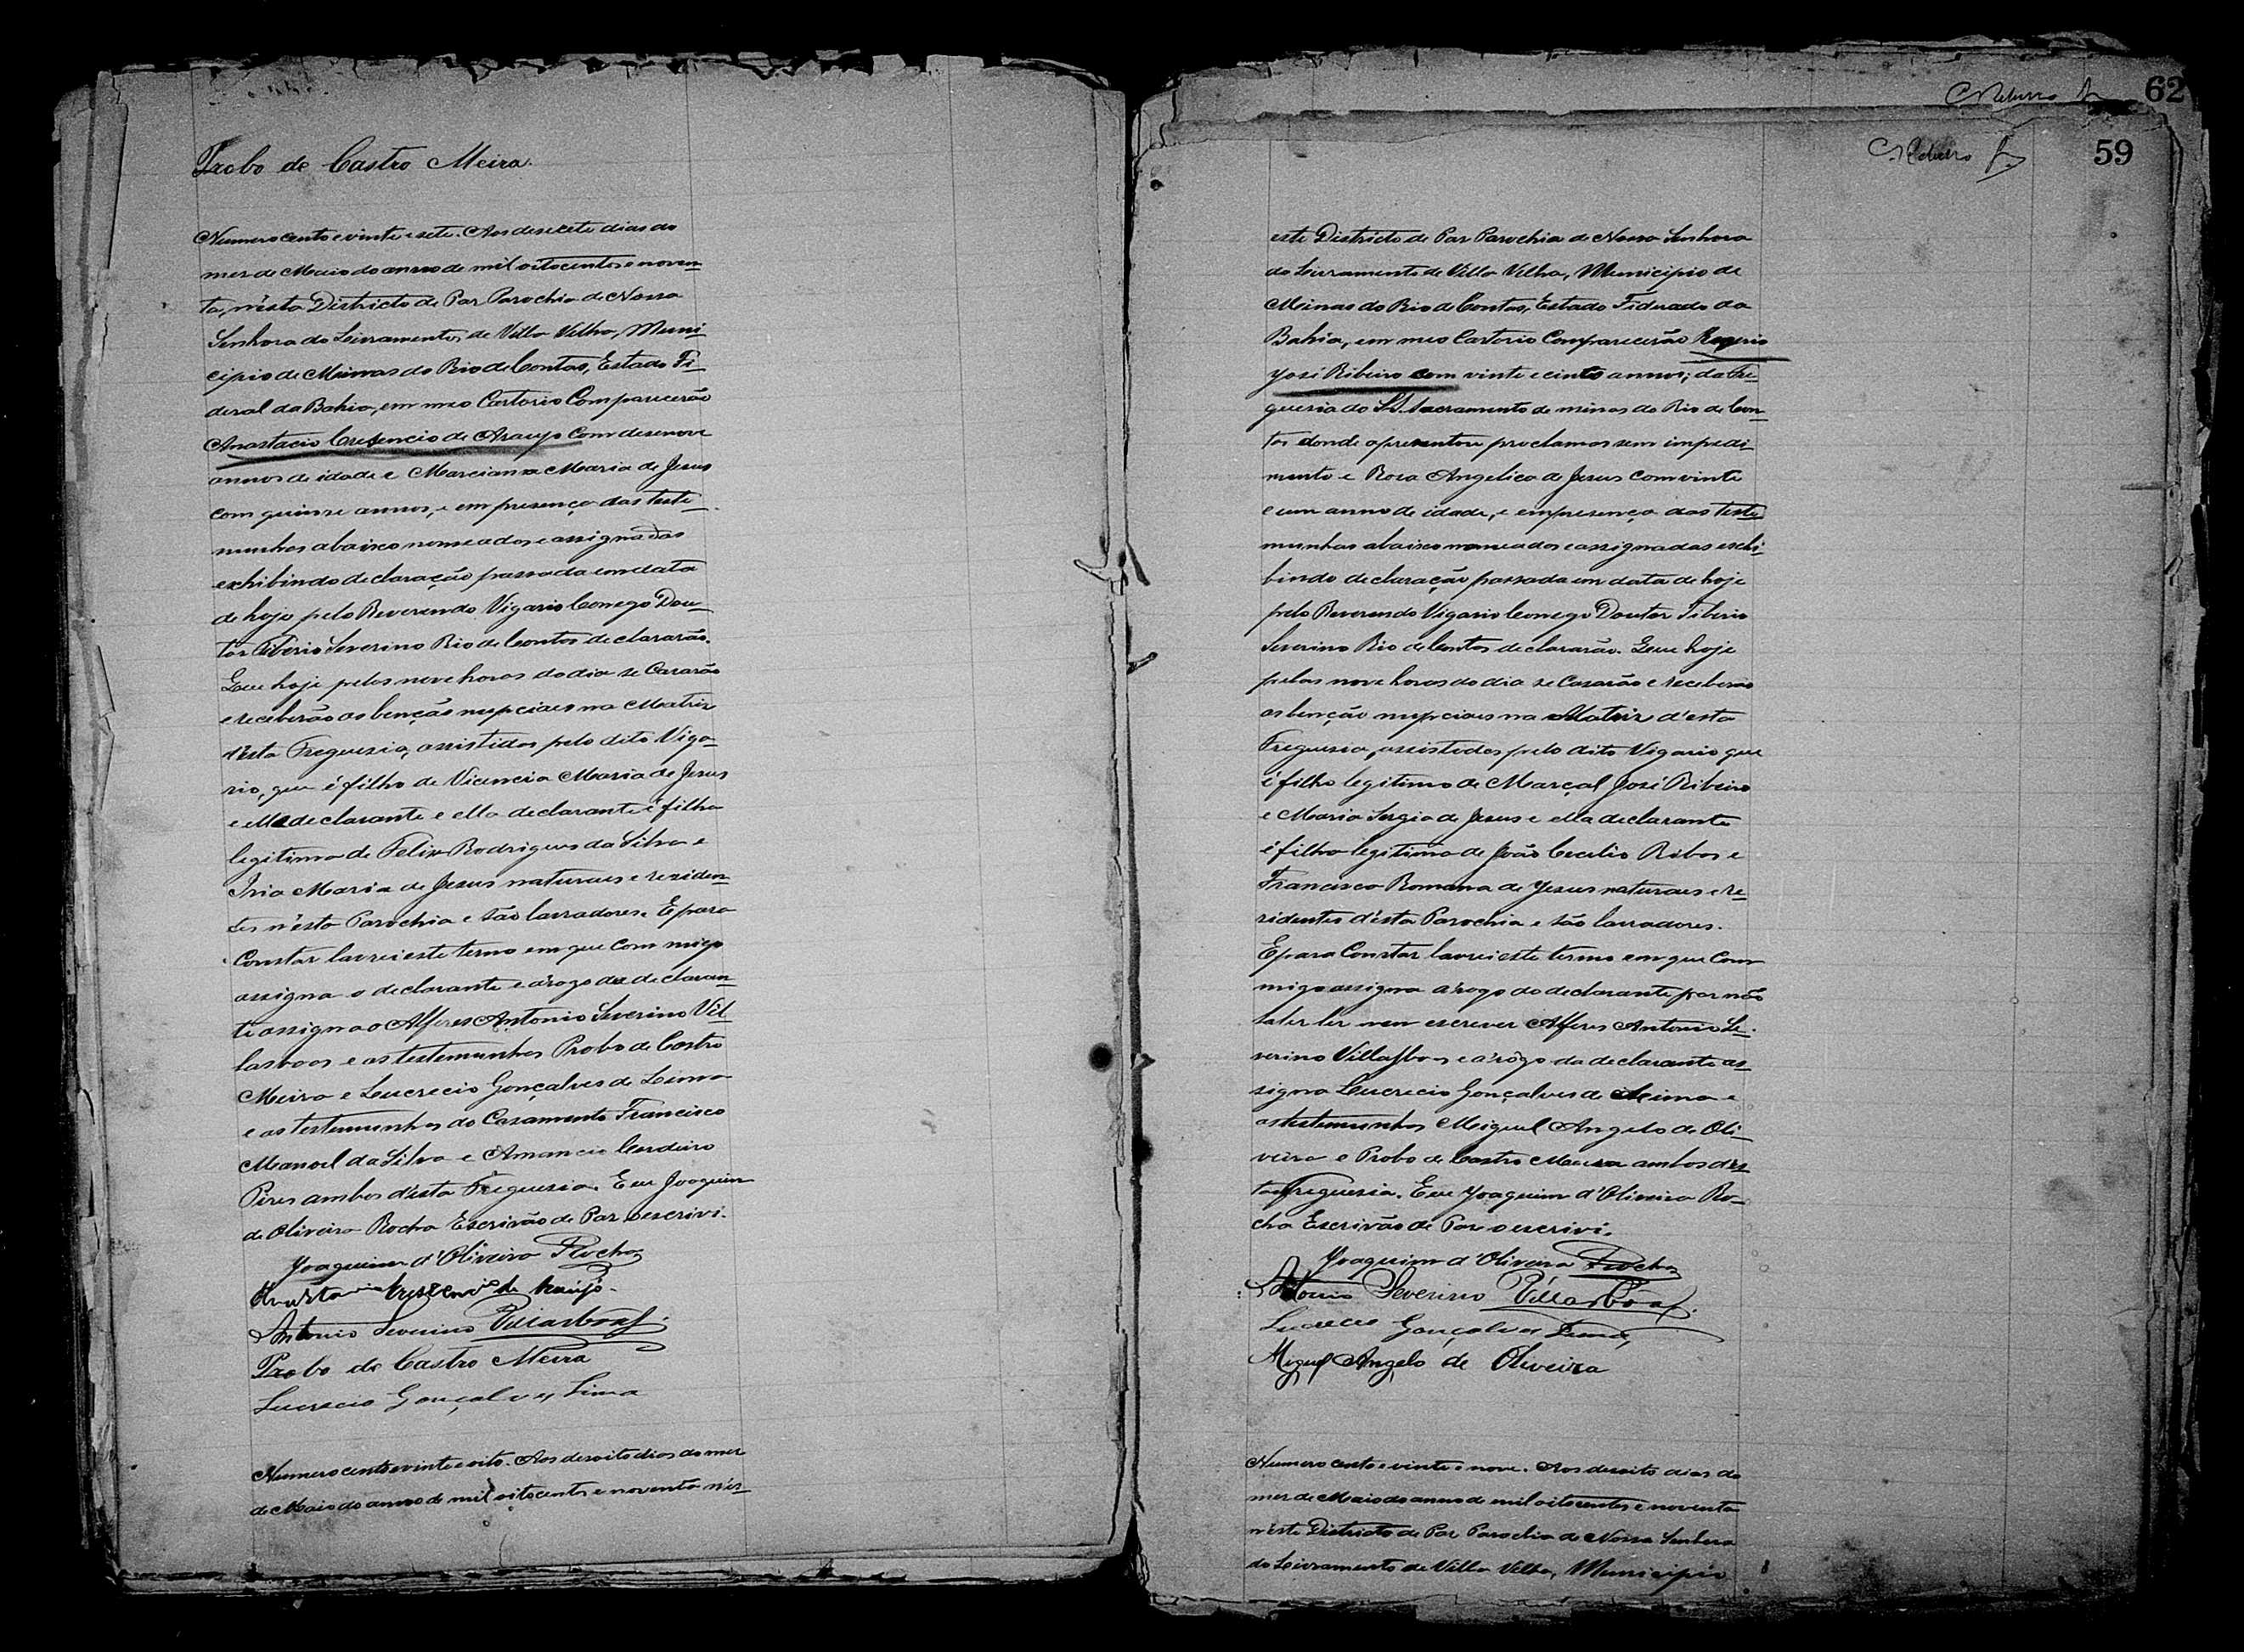 Probo de Castro Meira.
Numero cento e vinte e sete. Aos desecete dias do
mes de Maio do anno de mil oitocentos e noven-
ta, n'esta Districto de Paz Parochia de Nossa
Senhora do Livramento, de Villa Velha, Muni-
cipio de Minas do Rio de Contas, Estado Fe-
deral da Bahia, em meo Cartorio Comparecerão
Anastacio Cresencio de Araujo Com desenove
annos de idade e Marciana Maria de Jesus
com quinze annos, e em presença das teste-
munhas abaixo nomeados e assignadas
exhibindo declaração passada em data
de hoje pelo Reverendo Vigario Conego Dou-
tor Tiberio Severino Rio de Contas declararão.
Que hoje pelas nove horas do dia se Casarão
e receberão as benção nupciaes na Matriz
d'esta Freguesia, assistidos pelo dito Viga-
rio, que é filho de Vicencia Maria de Jesus
e elle declarante e ella declarante é filha
legitima de Felix Rodrigues da Silva e
Iria Maria de Jesus naturaes e residen-
tes n'esta Parochia e são lavradores. E para
Constar lavrei este termo em que com migo
assigna o declarante e a rogo da declaran-
te assigna o Alferes Antonio Severino Vil-
lasboas e as testemunhas Probo de Castro
Meira e Lucrecio Gonçalves de Lima
e as testemunhas do Casamento Francisco
Manoel da Silva e Amancio Cordeiro
Pires ambos d'esta Freguesia. Eu Joaquim
de Oliveira Rocha Escrivão de Paz o escrivi.
Joaquim d'Oliveira Rocha
Anastacio Cressencio de Araujo.
Antonio Severino Villasboas.
Probo de Castro Meira
Lucrecio Gonçalves Lima
Numero cento e vinte e oito. Aos desoito dias do mez
de Maio do anno de mil oitocentos e noventa n'es-
62
59
este Districto de Paz Parochia de Nossa Senhora
do Livramento de Villa Velha, Municipio de
Minas do Rio de Contas, Estado Fiderado da
Bahia, em meo Cartorio Comparecerão Rogerio
José Ribeiro com vinte e cinco annos; da Fre-
guesia do SS. Sacramento de minas do Rio de Con-
tas donde apresentou proclamas sem impedi-
mento e Rosa Angelica de Jesus com vinte
e um anno de idade, e em presença das teste-
munhas abaixo nomeados e assignadas exhi-
bindo declaração passada em data de hoje
pelo Reverendo Vigario Conego Doutor Tiberio
Severino Rio de Contas declararão. Que hoje
pelas nove horas do dia se Casarão e receberão
as benção nupciaes na Matriz d'esta
Freguesia, assistedos pelo dito Vigario que
é filho legitimo de Marçal José Ribeiro
e Maria Sergia de Jesus e ella declarante
é filha legitima de João Cecilio Ribas e
Francisca Romana de Jesus naturaes e re-
sidentes d'esta Parochia e são lavradores.
E para Constar lavrei este termo em que Com
migo assigna a rogo do declarante por não
saber ler nem escrever Alferes Antonio Se-
verino Villasboas e a rôgo da declarante as-
signa Lucrecio Gonçalves de Lima e
as testemunhas Miguel Angelo de Oli-
veira e Probo de Castro Meira ambos d'es-
ta freguesia. Eu Joaquim d'Oliveira Ro-
cha Escrivão de Paz o escrivi.
Joaquim d'Oliveira Rocha
Antonio Severino Villasbôas.
Lucrecio Gonçalves Lima,
Miguel Angelo de Oliveira
Numero cento e vinte e nove. Aos desoito dias do
mes de Maio do anno de mil oitocentos e noventa
n'este Districto de Paz Parochia de Nossa Senhora
do Livramento de Villa Velha, Municipio